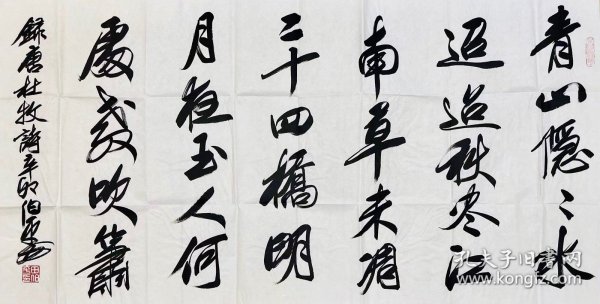 青山隱〻水
迢迢秋尽江
南草未凋
二十四橋明
月夜玉人何
處教吹簫
録唐杜牧詩辛卯伯
孔夫子旧书网